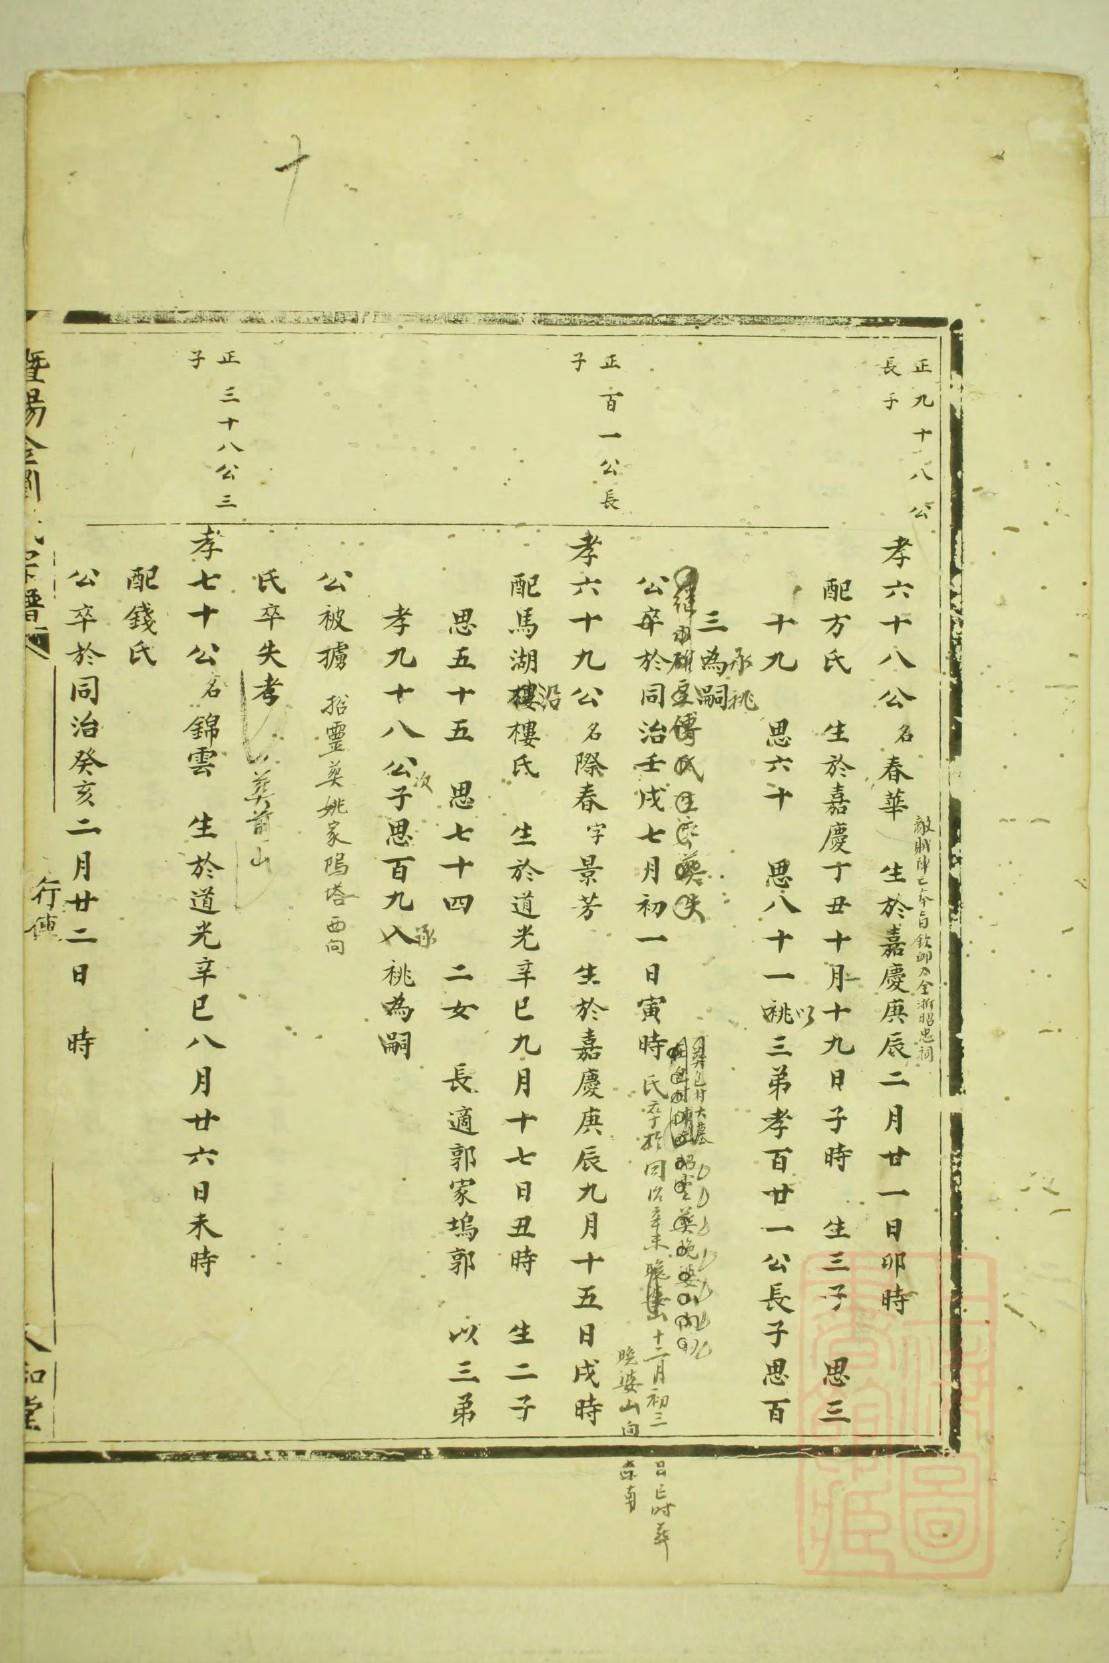 十
正九十八公
長子
孝六十八公名春華 生於嘉慶庚辰二月廿一日卯時
配方氏 生於嘉慶丁丑十月十九日子時 生三子 思三
十九 思六十 思八十一祧以三弟孝百廿一公長子思百
三為嗣
承祧
公卒於同治壬戌七月初一日寅時
氏卒於同治辛未
十二月初三
日巳时葬
晚婆山向
正百一公長
子
孝六十九公名際春字景芳 生於嘉慶庚辰九月十五日戌時
配馬湖樓樓氏 生於道光辛巳九月十七日丑時 生二子
沿
思五十五 思七十四 二女 長適郭家塢郭 以三弟
孝九十八公子思百九入祧為嗣
次
承
公被擄 招靈葬姚家隝塔西向
氏卒失考
葬前山
正三十八公三
子
孝七十公名錦雲 生於道光辛巳八月廿六日未時
配錢氏
公卒於同治癸亥二月廿二日 時
暨陽
宗譜
行傳
和堂